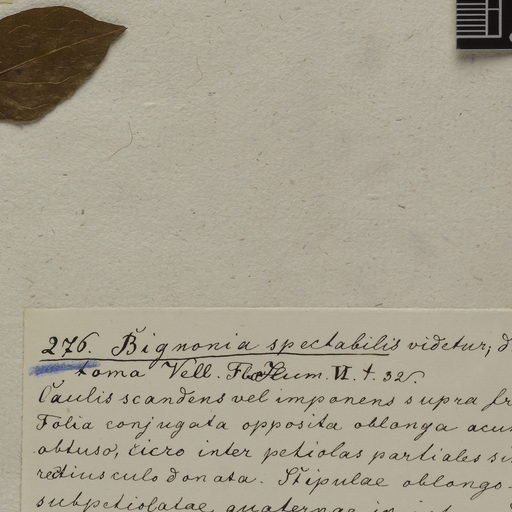 276. Bignonia spectabilis videtur, d
toma Vell. Fl. Flum. VI. t. 32.
Caulis scandens vel imponens supra fr
Folia conjugata opposita oblonga acu
obtuso, cicro inter petiolas partiales si
rectiusculo donata. Stipulae oblongo-
subpetiolatae, quaternae